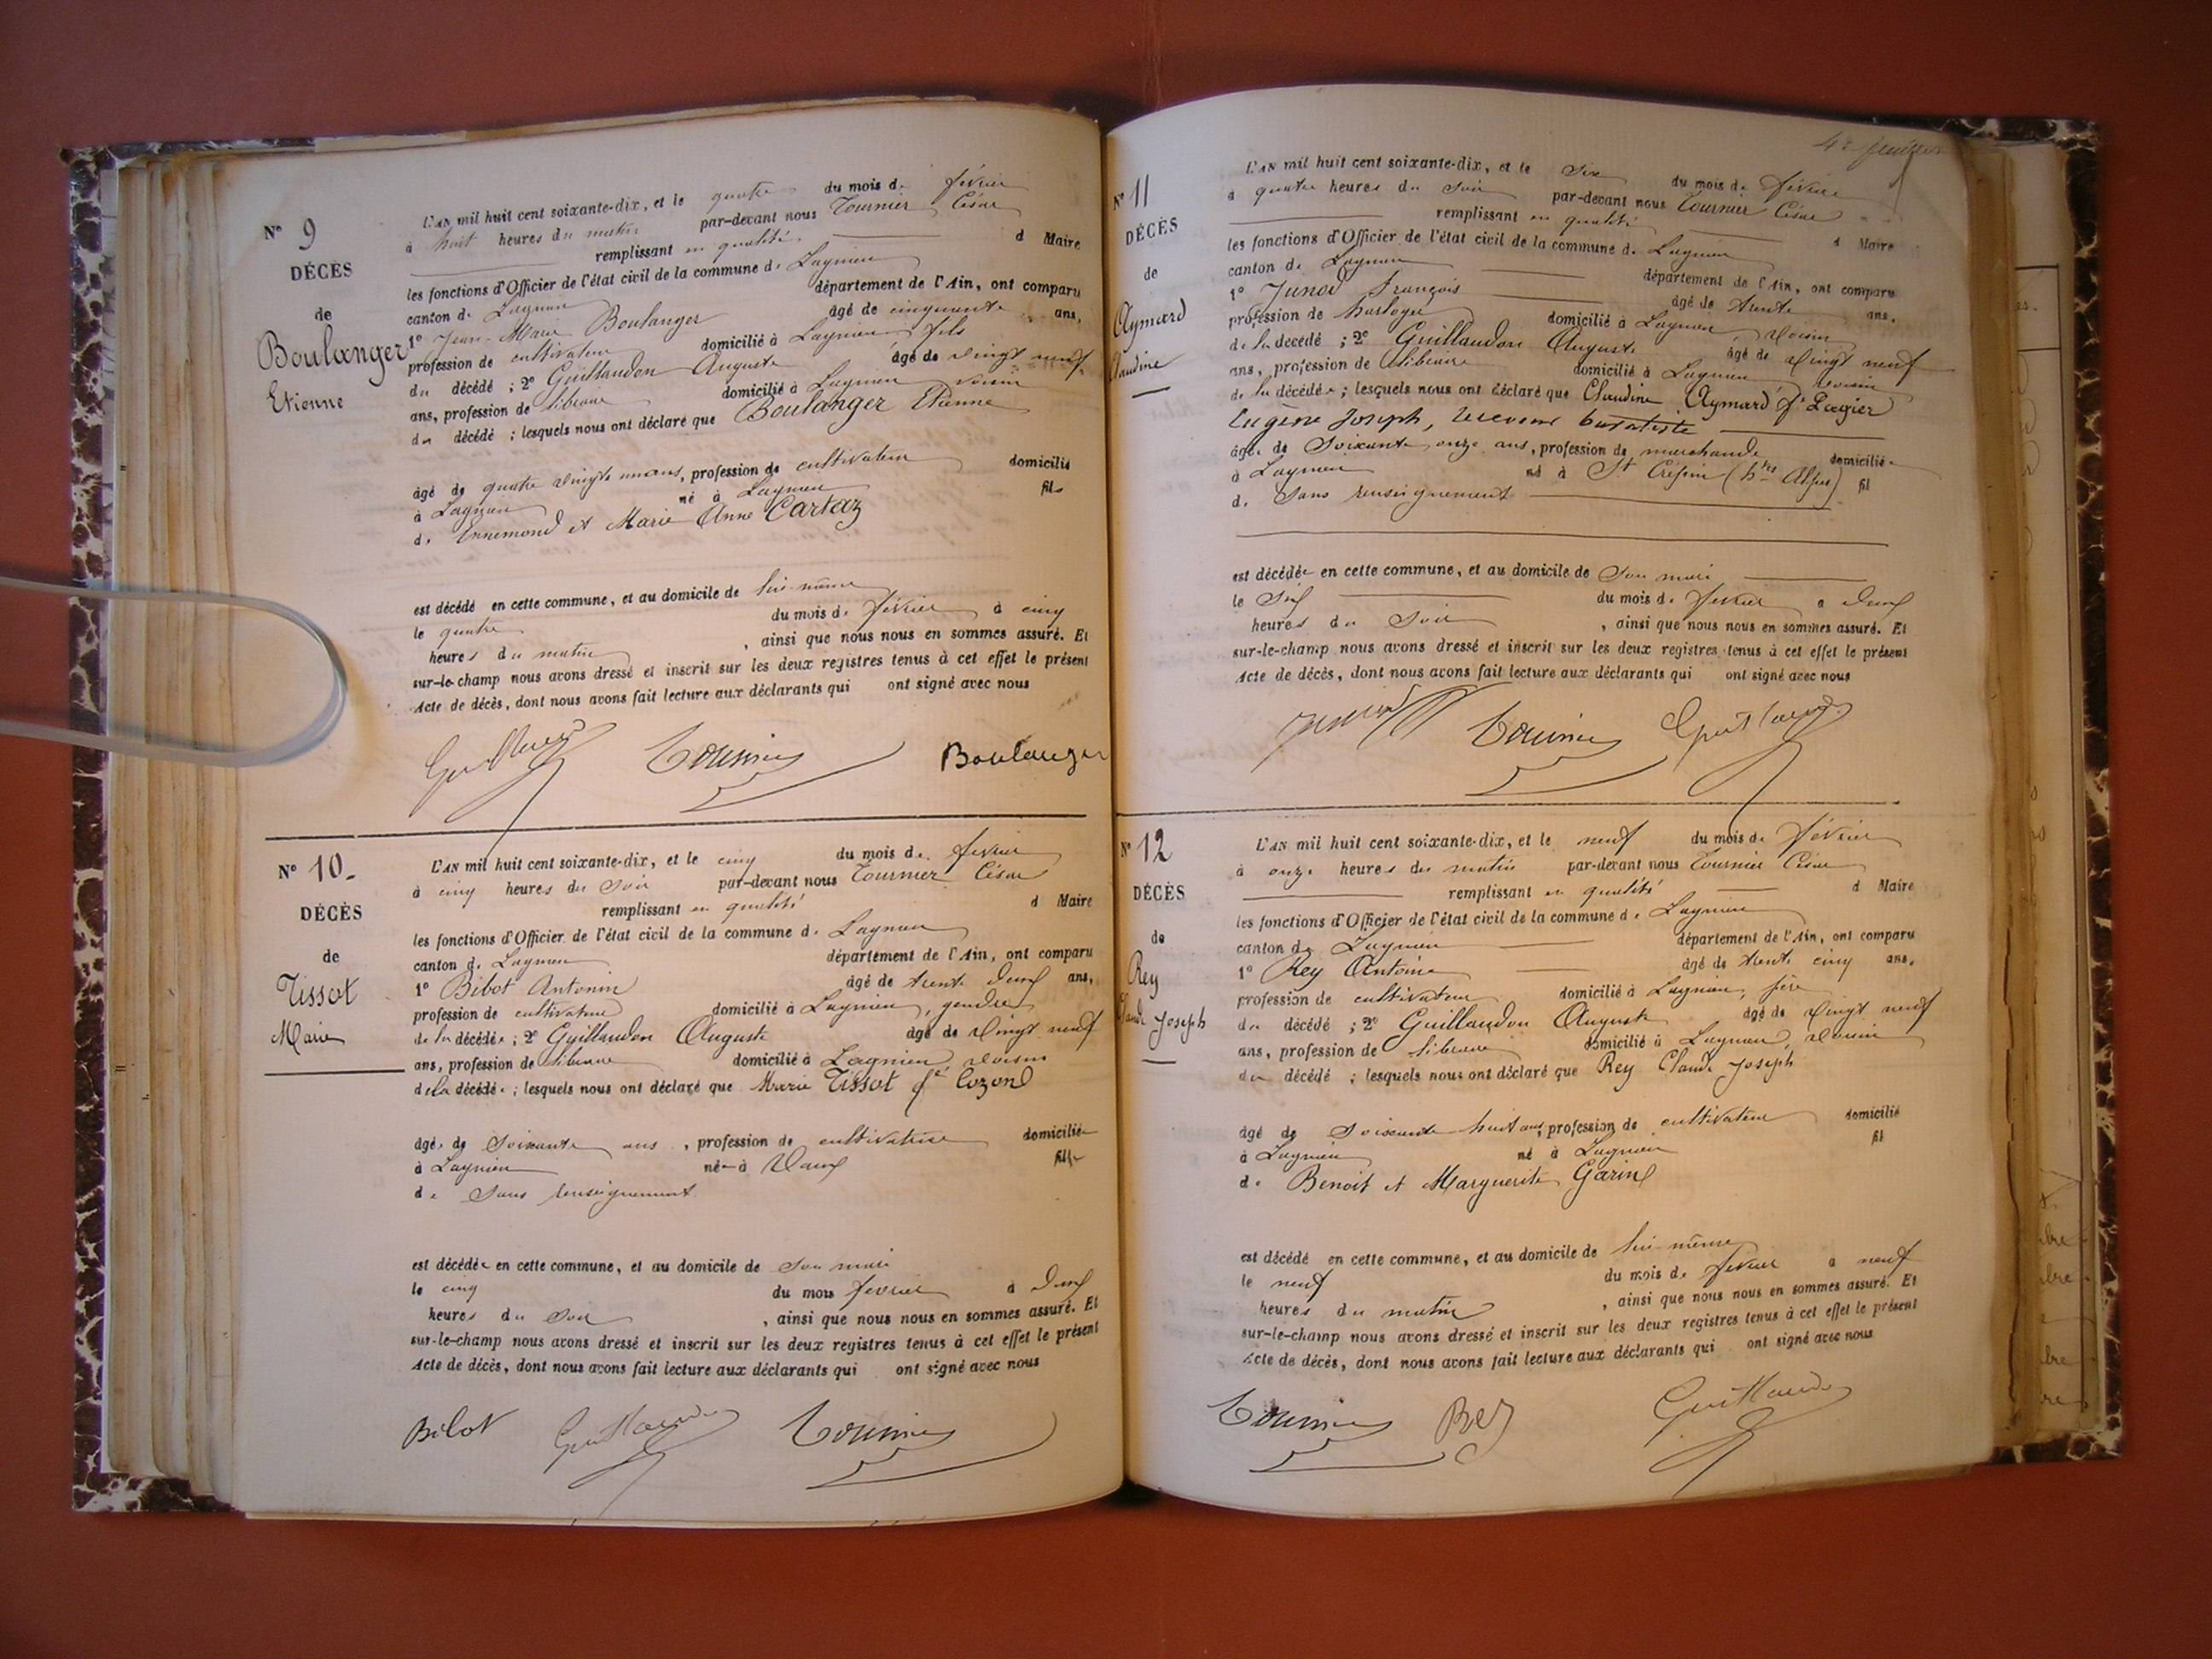 N° 9
DÉCÈS
de
Boulanger
Etienne
L'AN mil huit cent soixante-dix, et le quatre du mois de février
à huit heures du matin par-devant nous Tournier César
remplissant en qualité d Maire
les fonctions d'Officier de l'état civil de la commune de Lagnieu
canton de Lagnieu département de l'Ain, ont comparu
1° Jean-Marie Boulanger âgé de cinquante ans,
profession de cultivateur domicilié à Lagnieu fils
du décédé ; 2° Guillaudon Auguste âgé de vingt neuf
ans, profession de libraire domicilié à Lagnieu voisin
du décédé ; lesquels nous ont déclaré que Boulanger Etienne
âgé de quatre vingts un ans, profession de cultivateur domicilié
à Lagnieu né à Lagnieu fils
de Ennemond et Marie Anne Cartaz
est décédé en cette commune, et au domicile de lui-même
le quatre du mois de février à cinq
heures du matin, ainsi que nous nous en sommes assuré. Et
sur-le-champ nous avons dressé et inscrit sur les deux registres tenus à cet effet le présent
Acte de décès, dont nous avons fait lecture aux déclarants qui ont signé avec nous
Tournier Boulanger
N° 10
DÉCÈS
de
Tissot
Marie
L'AN mil huit cent soixante-dix, et le cinq du mois de février
à cinq heures du soir par-devant nous Tournier César
remplissant en qualité d Maire
les fonctions d'Officier de l'état civil de la commune de Lagnieu
canton de Lagnieu département de l'Ain, ont comparu
1° Bibot Antonin âgé de trente deux ans,
profession de cultivateur domicilié à Lagnieu, gendre
de la décédée ; 2° Guillaudon Auguste âgé de vingt neuf
ans, profession de libraire domicilié à Lagnieu voisin
de la décédée ; lesquels nous ont déclaré que Marie Tissot fe Cozon
âgée de soixante ans, profession de cultivatrice domiciliée
à Lagnieu née à Vaux fille
de sans renseignement
est décédée en cette commune, et au domicile de son mari
le cinq du mois février à deux
heures du soir, ainsi que nous nous en sommes assuré. Et
sur-le-champ nous avons dressé et inscrit sur les deux registres tenus à cet effet le présent
Acte de décès, dont nous avons fait lecture aux déclarants qui ont signé avec nous
Tournier
N° 11
DÉCÈS
de
Aymard
Claudine
L'AN mil huit cent soixante-dix, et le six du mois de février
à quatre heures du soir par-devant nous Tournier César
remplissant en qualité d Maire
les fonctions d'Officier de l'état civil de la commune de Lagnieu
canton de Lagnieu département de l'Ain, ont comparu
1° Junod François âgé de trente ans,
profession de horloger domicilié à Lagnieu voisin
de la décédé ; 2° Guillaudon Auguste âgé de vingt neuf
ans, profession de libraire domicilié à Lagnieu voisin
de la décédée ; lesquels nous ont déclaré que Claudine Aymard fe Lagier
Eugène Joseph, receveur buraliste
âgée de soixante onze ans, profession de marchande domiciliée
à Lagnieu né à St Crépin (htes Alpes) fil
de sans renseignement
est décédée en cette commune, et au domicile de son mari
le six du mois de février à deux
heures du soir, ainsi que nous nous en sommes assuré. Et
sur-le-champ nous avons dressé et inscrit sur les deux registres tenus à cet effet le présent
Acte de décès, dont nous avons fait lecture aux déclarants qui ont signé avec nous
Tournier
N° 12
DÉCÈS
de
Rey
Claude Joseph
L'AN mil huit cent soixante-dix, et le neuf du mois de février
à onze heures du matin par-devant nous Tournier César
remplissant en qualité d Maire
les fonctions d'Officier de l'état civil de la commune de Lagnieu
canton de Lagnieu département de l'Ain, ont comparu
1° Rey Antoine âgé de trente cinq ans,
profession de cultivateur domicilié à Lagnieu,
du décédé ; 2° Guillaudon Auguste âgé de vingt neuf
ans, profession de libraire domicilié à Lagnieu, voisin
du décédé ; lesquels nous ont déclaré que Rey Claude Joseph
âgé de soixante huit ans, profession de cultivateur domicilié
à Lagnieu né à Lagnieu fil
de Benoit et Marguerite Garin
est décédé en cette commune, et au domicile de lui-même
le neuf du mois de février à neuf
heures du matin, ainsi que nous nous en sommes assuré. Et
sur-le-champ nous avons dressé et inscrit sur les deux registres tenus à cet effet le présent
Acte de décès, dont nous avons fait lecture aux déclarants qui ont signé avec nous
Tournier Rey